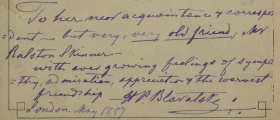 To her new acquaintance & correspo
=dent - but very, very old friend, Mr
Ralston Skinner
with ever growing feelings of sympa
=thy, admiration, appreciation & the warmest
friendship HPBlavatsky
London. May. 1887